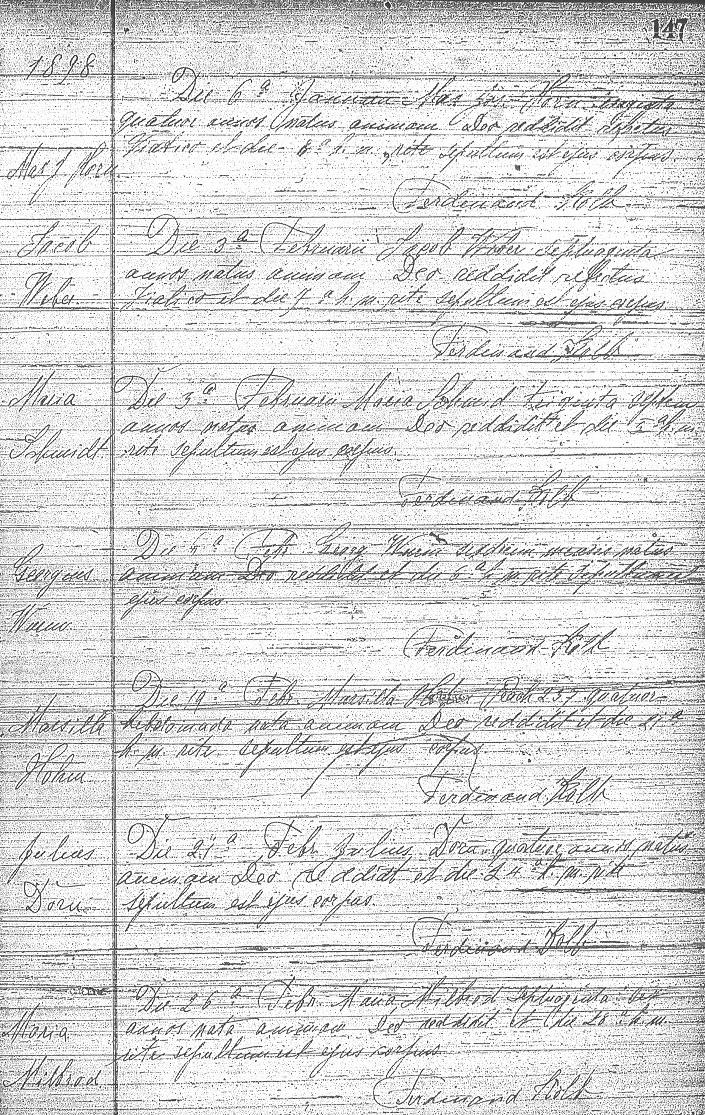 147
1898
Die 6ª Januarii Max Jos. Horn
quatuor annos natus animam Deo reddidit refectus
Max J. Horn
Viatico et die 8ª h. m. rite sepultum est ejus corpus.
Ferdinand Kolb
Jacob
Die 3ª Februarii Jacob Weber septuaginta
annos natus animam Deo reddidit refectus
Weber
Viatico et die 7ª h. m. rite sepultum est ejus corpus
Ferdinand Kolb
Maria
Die 3ª Februarii Maria Schmid triginta septem
annos natus animam Deo reddidit et die 5ª h. m.
Schmidt
rite sepultum est ejus corpus.
Ferdinand Kolb
Die 4ª Febr. Georg Wurm natus
Georgius
animam Deo reddidit et die 6ª h. m. rite sepultum est
ejus corpus
Wurm
Ferdinand Kolb
Die 19ª Febr. Marsilla quatuor
Marsilla
hebdomada nata animam Deo reddidit et die 21ª
h. m. rite sepultum est ejus corpus
Hohm
Ferdinand Kolb
Julius
Die 21ª Febr. Julius Dorn quatuor annos natus
animam Deo reddidit et die 24ª h. m. rite
Dorn
sepultum est ejus corpus.
Ferdinand Kolb
Die 26ª Febr. Maria Milbrod septuaginta
Maria
annos nata animam Deo reddidit et die 28ª h. m.
rite sepultum est ejus corpus
Milbrod
Ferdinand Kolb